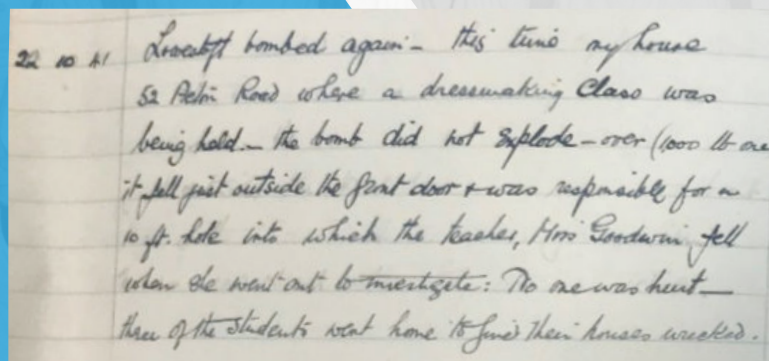 22 10 41 Lowestoft bombed again - this time my house
52 Acton Road where a dressmaking Class was
being held. - the bomb did not explode - over (1000 lb one
it fell just outside the front door + was responsible for a
10 ft. hole into which the teacher, Miss Goodwin fell
when she went out to investigate: No one was hurt -
three of the students went home to find their houses wrecked.